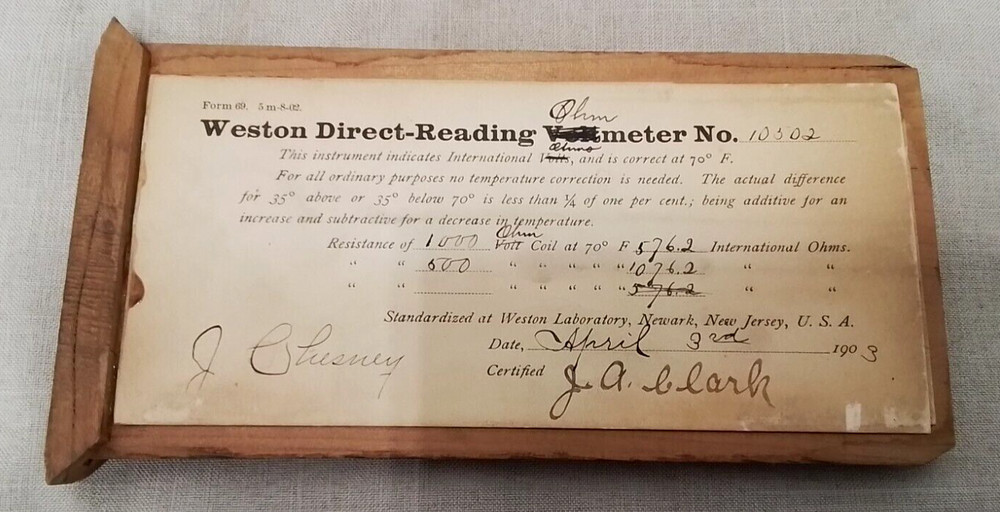 Form 69. 5 m-8-02.
Ohm
Weston Direct-Reading Voltmeter No. 10502
Ohms
This instrument indicates International Volts, and is correct at 70° F.
For all ordinary purposes no temperature correction is needed. The actual difference
for 35° above or 35° below 70° is less than ¼ of one per cent.; being additive for an
increase and subtractive for a decrease in temperature.
Ohm
Resistance of 1000 Volt Coil at 70° F 576.2 International Ohms.
" " 500 " " " " " 1076.2 " "
" " " " " " " 576.2 " "
Standardized at Weston Laboratory, Newark, New Jersey, U. S. A.
Date, April 3rd 1903
J Chesney
Certified J. A. Clark